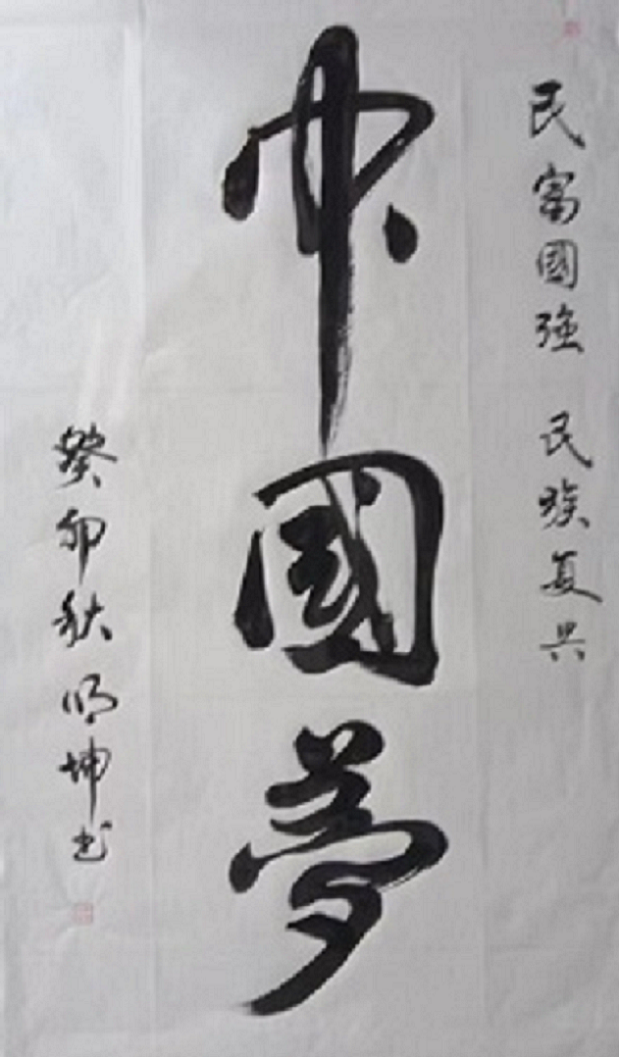 民富國強 民族复兴
中國夢
癸卯秋明坤书